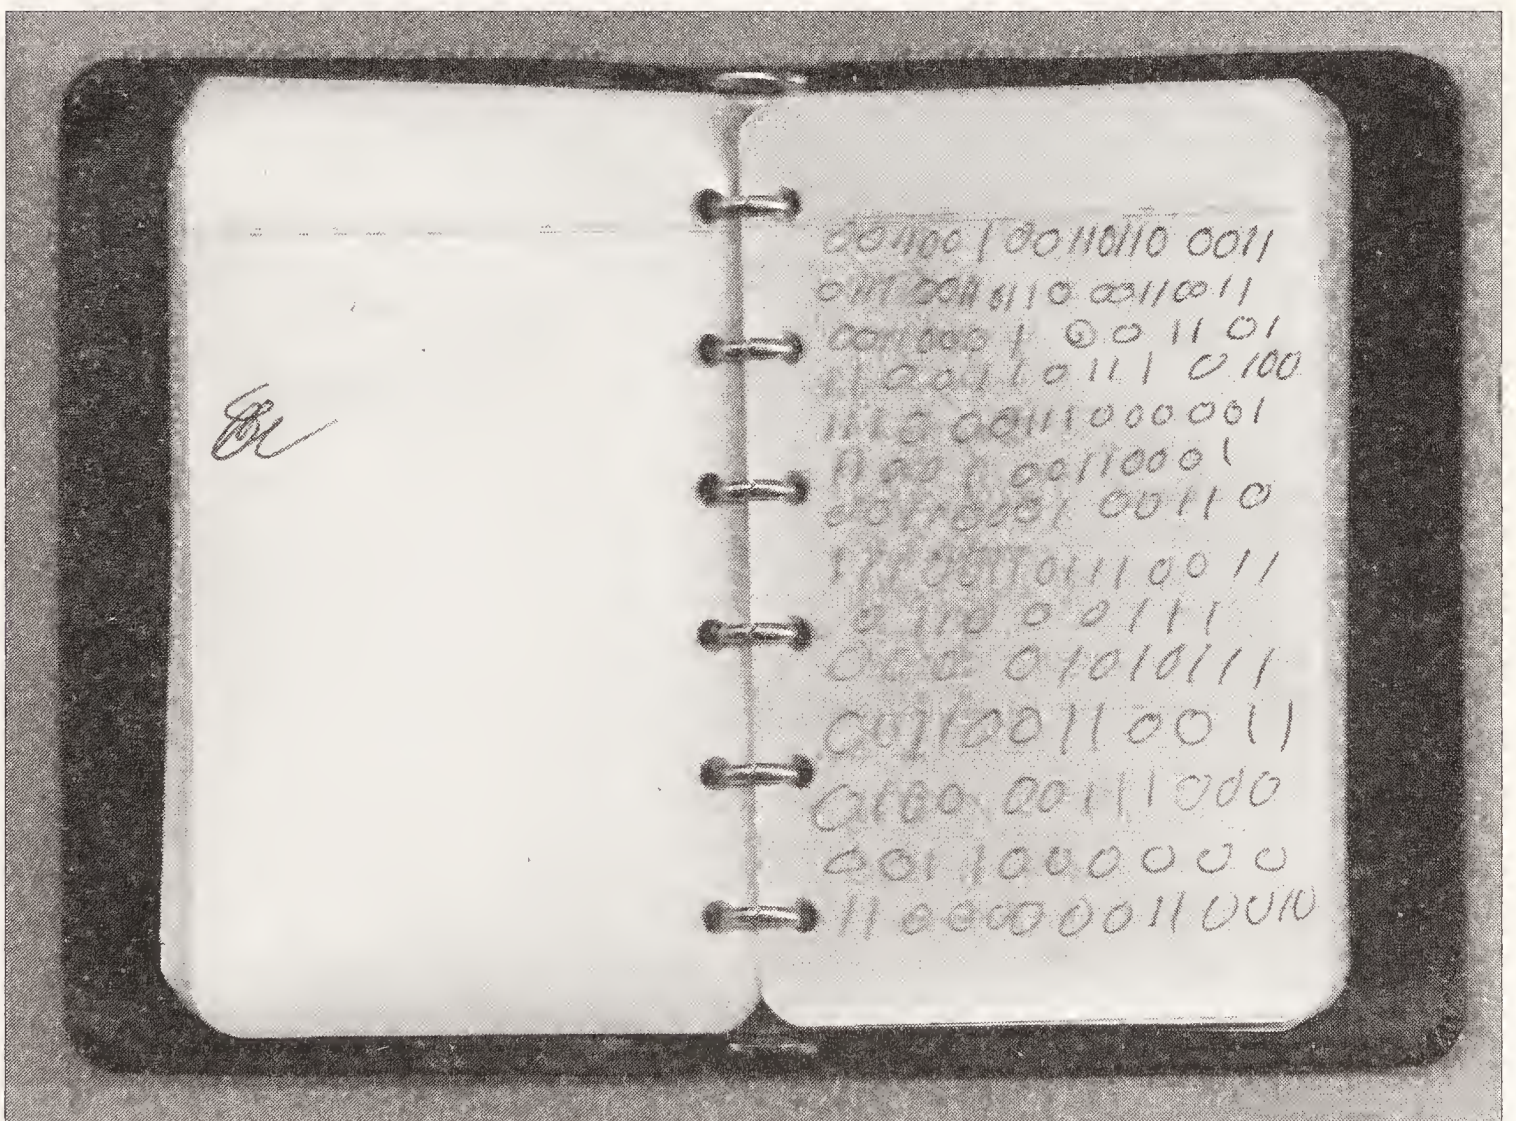 001100 1 00110110 0011
0111 0011 0110 00110011
0011000 1 00 11 01
11 001 1 0 11 1 0 100
1110 00111000001
1100 1 00110001
00110001 00110
111 001101110011
0 110 0 0 1 1 1
000 0 1010111
0011001100 11
0100 00111000
001 1000000
11 000000110010